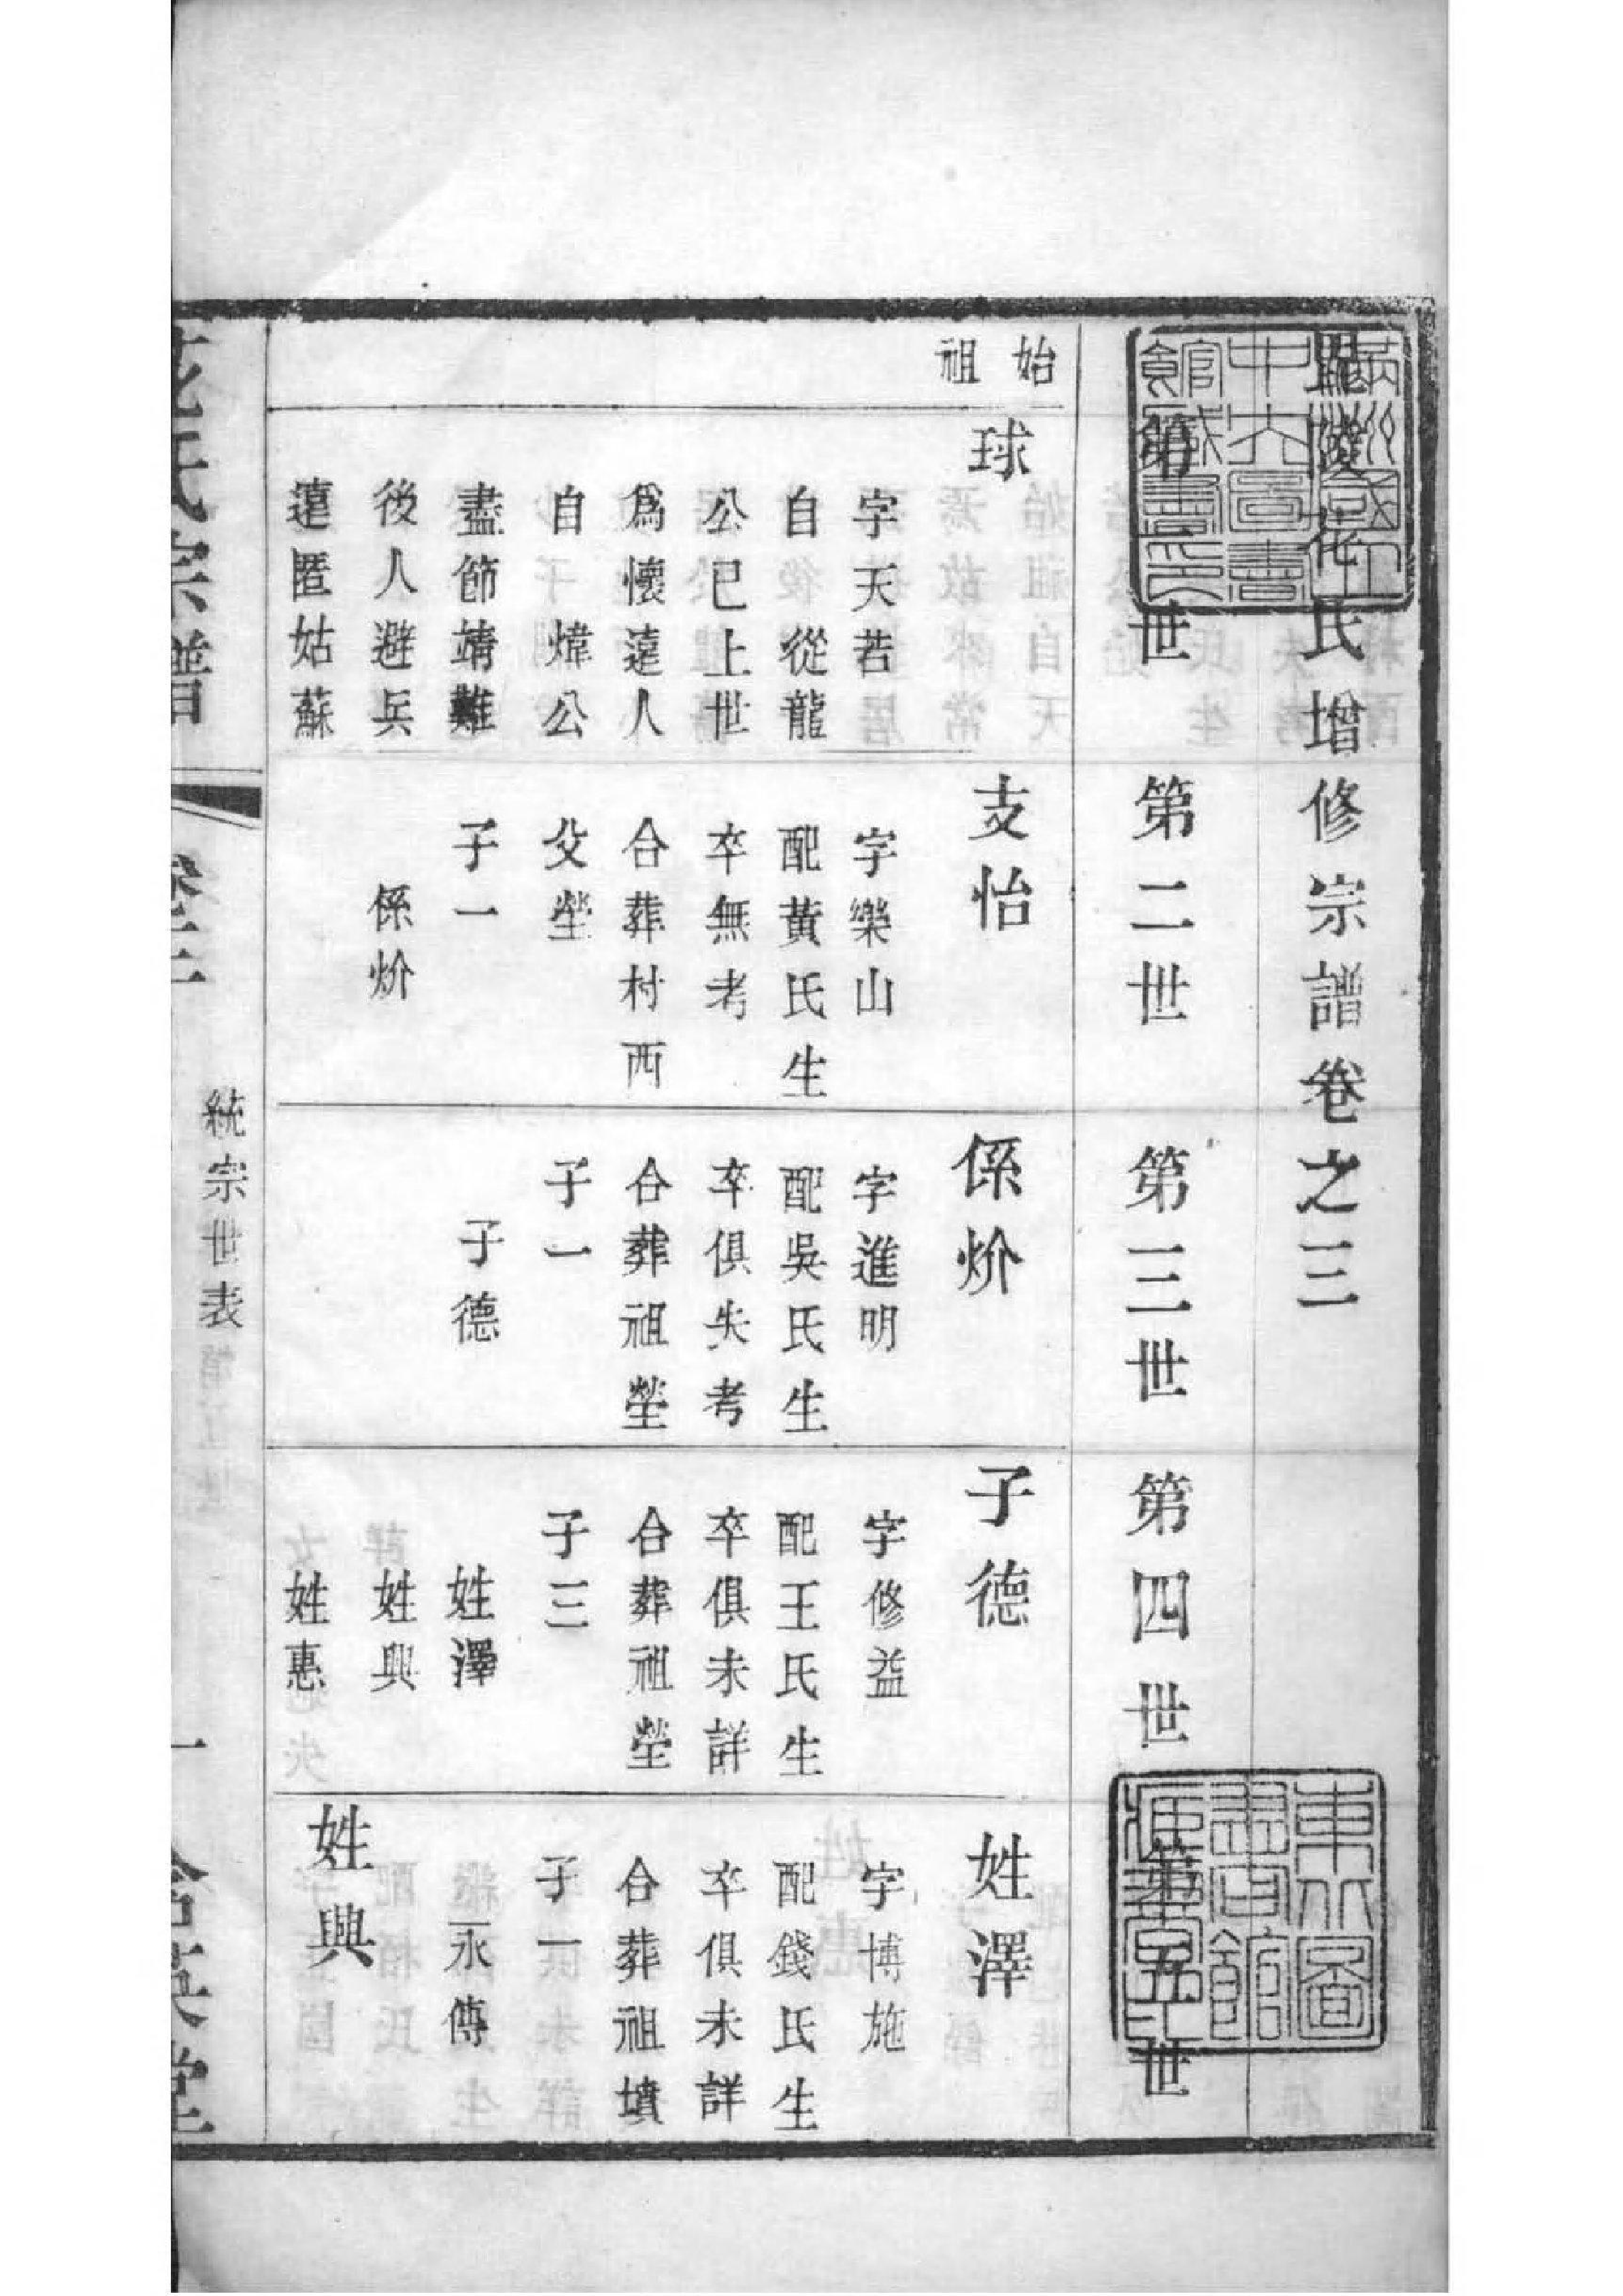 毘陵花氏增修宗譜卷之三
第一世
第二世
第三世
第四世
第五世
始祖
球
字天若
自從龍
公巳上世
爲懷遠人
自煒公
盡節靖難
後人避兵
遠匿姑蘇
支怡
字樂山
配黃氏生
卒無考
合葬村西
父塋
子一
係炌
係炌
字進明
配吳氏生
卒俱失考
合葬祖塋
子一
子德
子德
字修益
配王氏生
卒俱未詳
合葬祖塋
子三
姓澤
姓興
姓惠
姓澤
字博施
配錢氏生
卒俱未詳
合葬祖墳
子一
永傳
姓興
花氏宗譜
卷三
統宗世表
一
東北圖書館